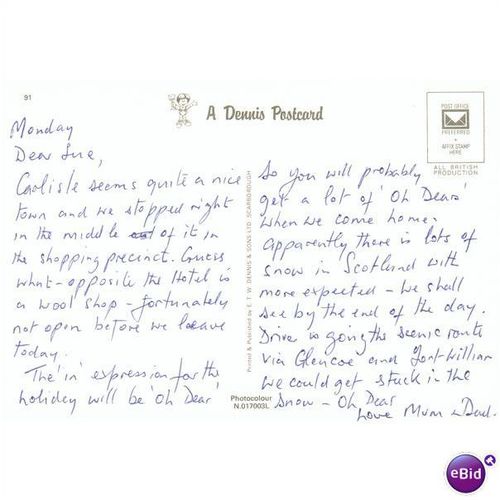 91
A Dennis Postcard
POST OFFICE
PREFERRED
AFFIX STAMP
HERE
ALL BRITISH
PRODUCTION
Monday
Dear Sue,
Carlisle seems quite a nice
town and we stopped right
in the middle out of it in
the shopping precinct. Guess
what - opposite the Hotel is
a wool shop - fortunately
not open before we leave
today.
The 'in' expression for the
holiday will be 'Oh Dear'
Printed & Published by E. T. W. DENNIS & SONS LTD. SCARBOROUGH
So you will probably
get a lot of 'Oh Dears'
when we come home.
Apparently there is lots of
snow in Scotland with
more expected - we shall
see by the end of the day.
Driver is going the scenic route
via Glencoe and Fort William
we could get stuck in the
snow - Oh Dear
Love Mum & Dad.
Photocolour
N.017003L
eBid